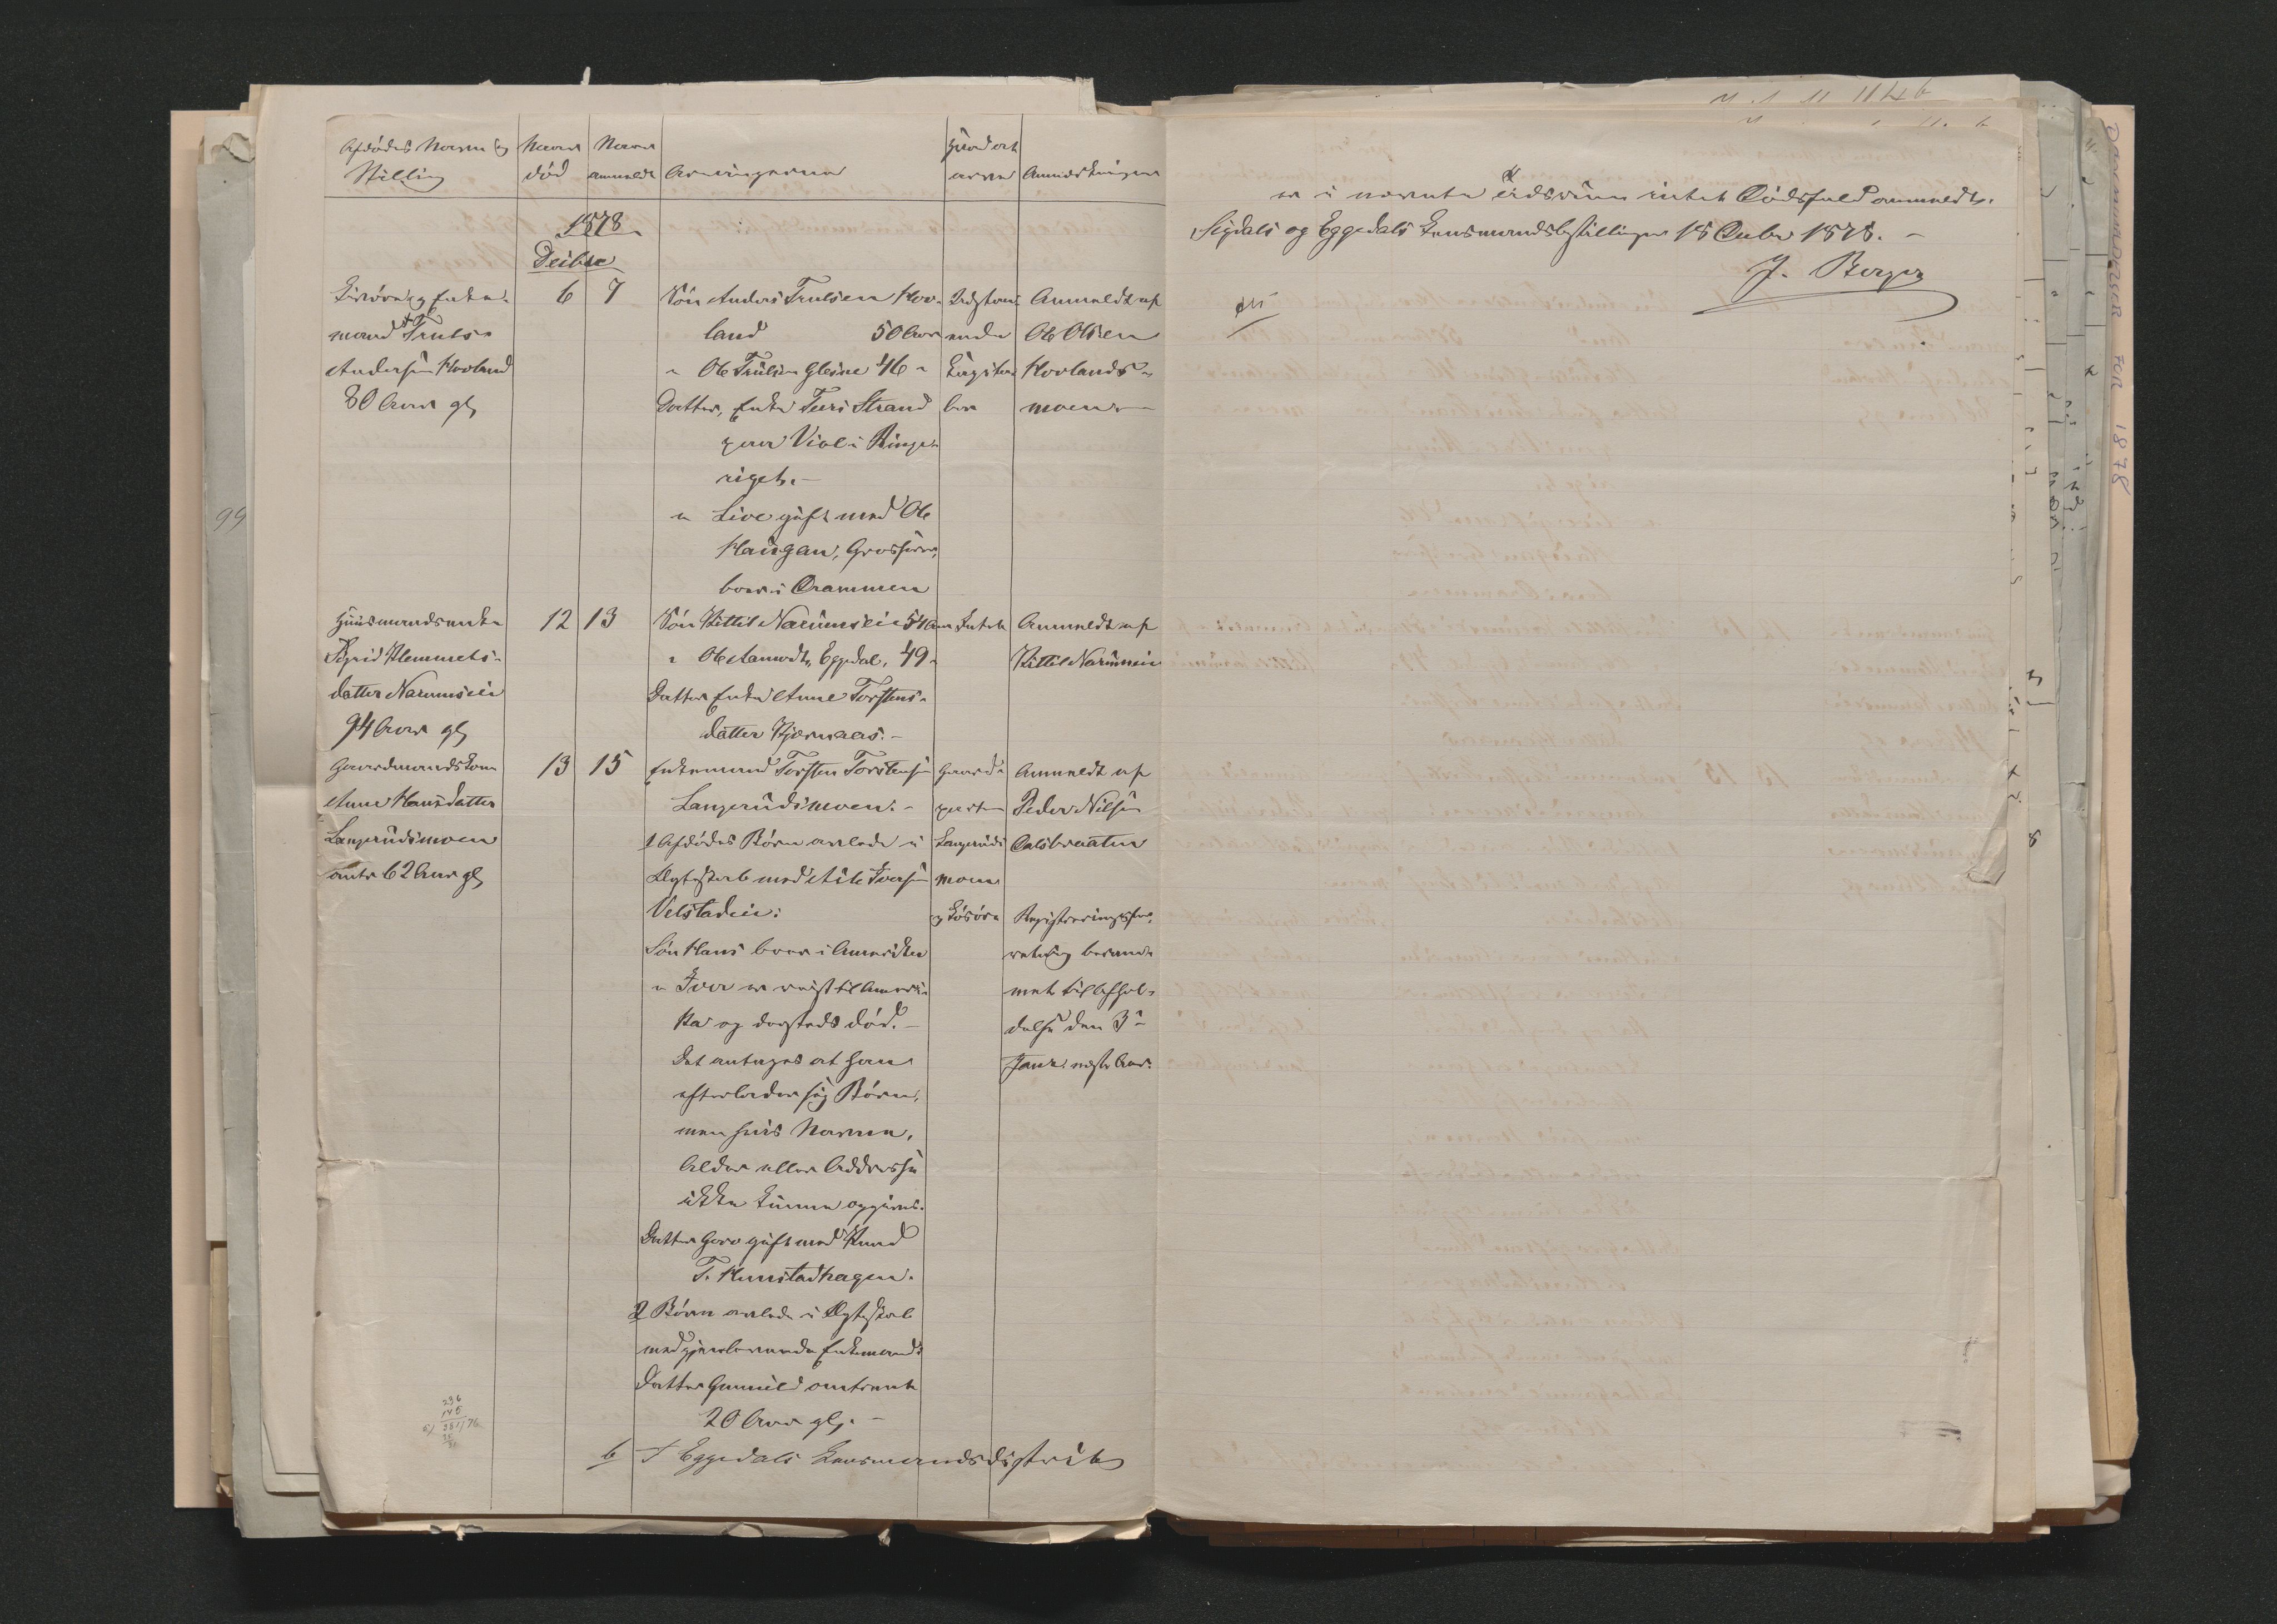 Afdødes Navn og
Stilling
Naar
død
Naar
anmeldt
Arvingerne
Hvad at
arve
Anmærkninger
1878
Decbr
og Enke-
mand Truls
Andersen Hovland
80 Aar gl
6
7
Søn Anders Trulsen Hov-
land 50 Aar
" Ole Trulsen Gleine 46 "
Datter, Enke Turi Strand
paa Viol i Ringe-
riget.-
" Live gift med Ole
Haugan, Grosserer,
boer i Drammen
ende
Anmeldt af
Ole Olsen
Hovlands-
moen
Huusmandsenke
Sigrid Klemmets-
datter Narumseie
94 Aar gl
12
13
Søn Kittil Narumseie 54 Aar
" Ole Aamodt, Eggedal, 49 "
Datter Enke Anne Torstens-
datter Kjærnaas.-
Intet
Anmeldt af
Kittil Narumseie
Gaardmandskone
Anne Hansdatter
Langerudsmoen
omtr 62 Aar gl
13
15
Enkemand Torsten Torstensen
Langerudsmoen.-
1 Afdødes Børn avlede i
Ægteskab med Atle Iversen
Velstadeie:
Søn Hans boer i Amerika
" Iver er reist til Ameri-
ka og dersteds død.-
Det antages at han
efterlader sig Børn,
men hvis Navne,
Alder eller Addresse
ikke kunne opgives.
Datter Goro gift med Knud
T. Kunstadhagen.
2 Børn avlede i Ægteskab
med gjenlevende Enkemand:
Datter Gunild omtrent
20 Aar gl.-
Gaard-
parten
Langeruds
moen
og Løsøre
Anmeldt af
Peder Nilsen
Dalsbraaten
Registreringsfor-
retning beram-
met til Afhol-
delse den 3'
Janr næste Aar.
6 I Eggedals Lensmandsdistrikt
236
145
er i nævnte Tidsrum intet Dødsfald anmeldt.
Sigdals og Eggedals Lensmandsbestillinger 18 Decbr 1878.-
J. Berger
99
DØDSANMELDELSER FOR 1878